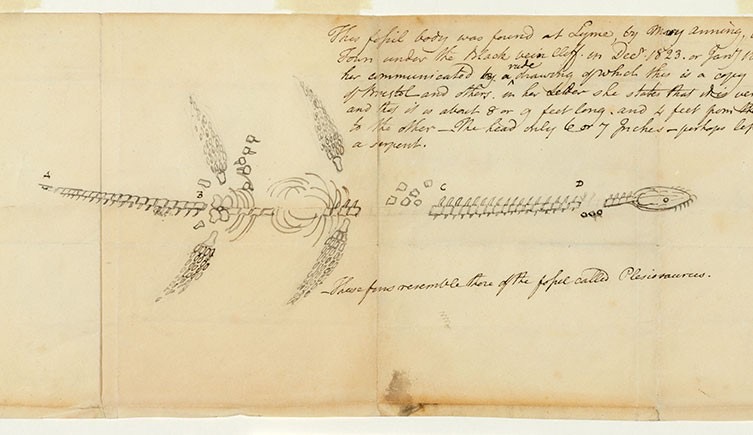 This fossil body was found at Lyme, by Mary Anning,
Town under the Black vein Cliff. in Decr. 1823. or Jany
her communicated by a rude drawing of which this is a copy
of Bristol and others. in her Letter she states that it is
and this is about 8 or 9 feet long. and 4 feet from
to the other — The head only 6 or 7 Inches — perhaps
a serpent.
A
B
C
D
— These fins resemble those of the fossil called Plesiosaurus.